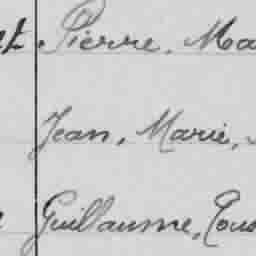 Pierre, Ma
Jean, Marie,
Guillaume, Tous